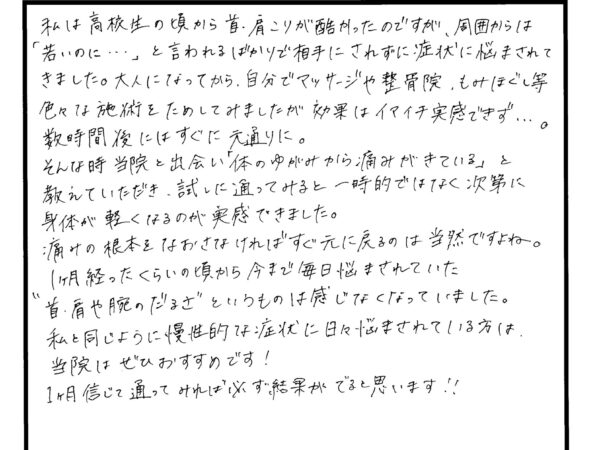 私は高校生の頃から首、肩こりが酷かったのですが、周囲からは
「若いのに…」と言われるばかりで相手にされずに症状に悩まされて
きました。大人になってから、自分でマッサージや整骨院、もみほぐし等
色々な施術をためしてみましたが効果はイマイチ実感できず…。
数時間後にはすぐに元通りに。
そんな時当院と出会い「体のゆがみから痛みがきている」と
教えていただき、試しに通ってみると一時的ではなく次第に
身体が軽くなるのが実感できました。
痛みの根本をなおさなければすぐ元に戻るのは当然ですよね。
1ヶ月経ったくらいの頃から今まで毎日悩まされていた
"首、肩や腕のだるさ"というものは感じなくなっていました。
私と同じように慢性的な症状に日々悩まされている方は、
当院はぜひおすすめです!
1ヶ月信じて通ってみれば必ず結果がでると思います!!